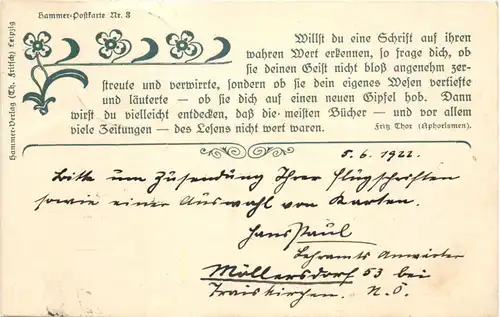 Hammer-Postkarte Nr. 3
Hammer-Verlag (Th. Fritsch) Leipzig
Willst du eine Schrift auf ihren
wahren Wert erkennen, so frage dich, ob
sie deinen Geist nicht bloß angenehm zer-
streute und verwirrte, sondern ob sie dein eigenes Wesen vertiefte
und läuterte — ob sie dich auf einen neuen Gipfel hob. Dann
wirst du vielleicht entdecken, daß die meisten Bücher — und vor allem
viele Zeitungen — des Lesens nicht wert waren.
Fritz Thor (Aphorismen).
5.6.1922.
Bitte um Zusendung Ihrer Flugschriften
sowie einer Auswahl von Karten.
Hans Paul
Lehramts Anwärter
Möllersdorf 53 bei
Traiskirchen. N.Ö.